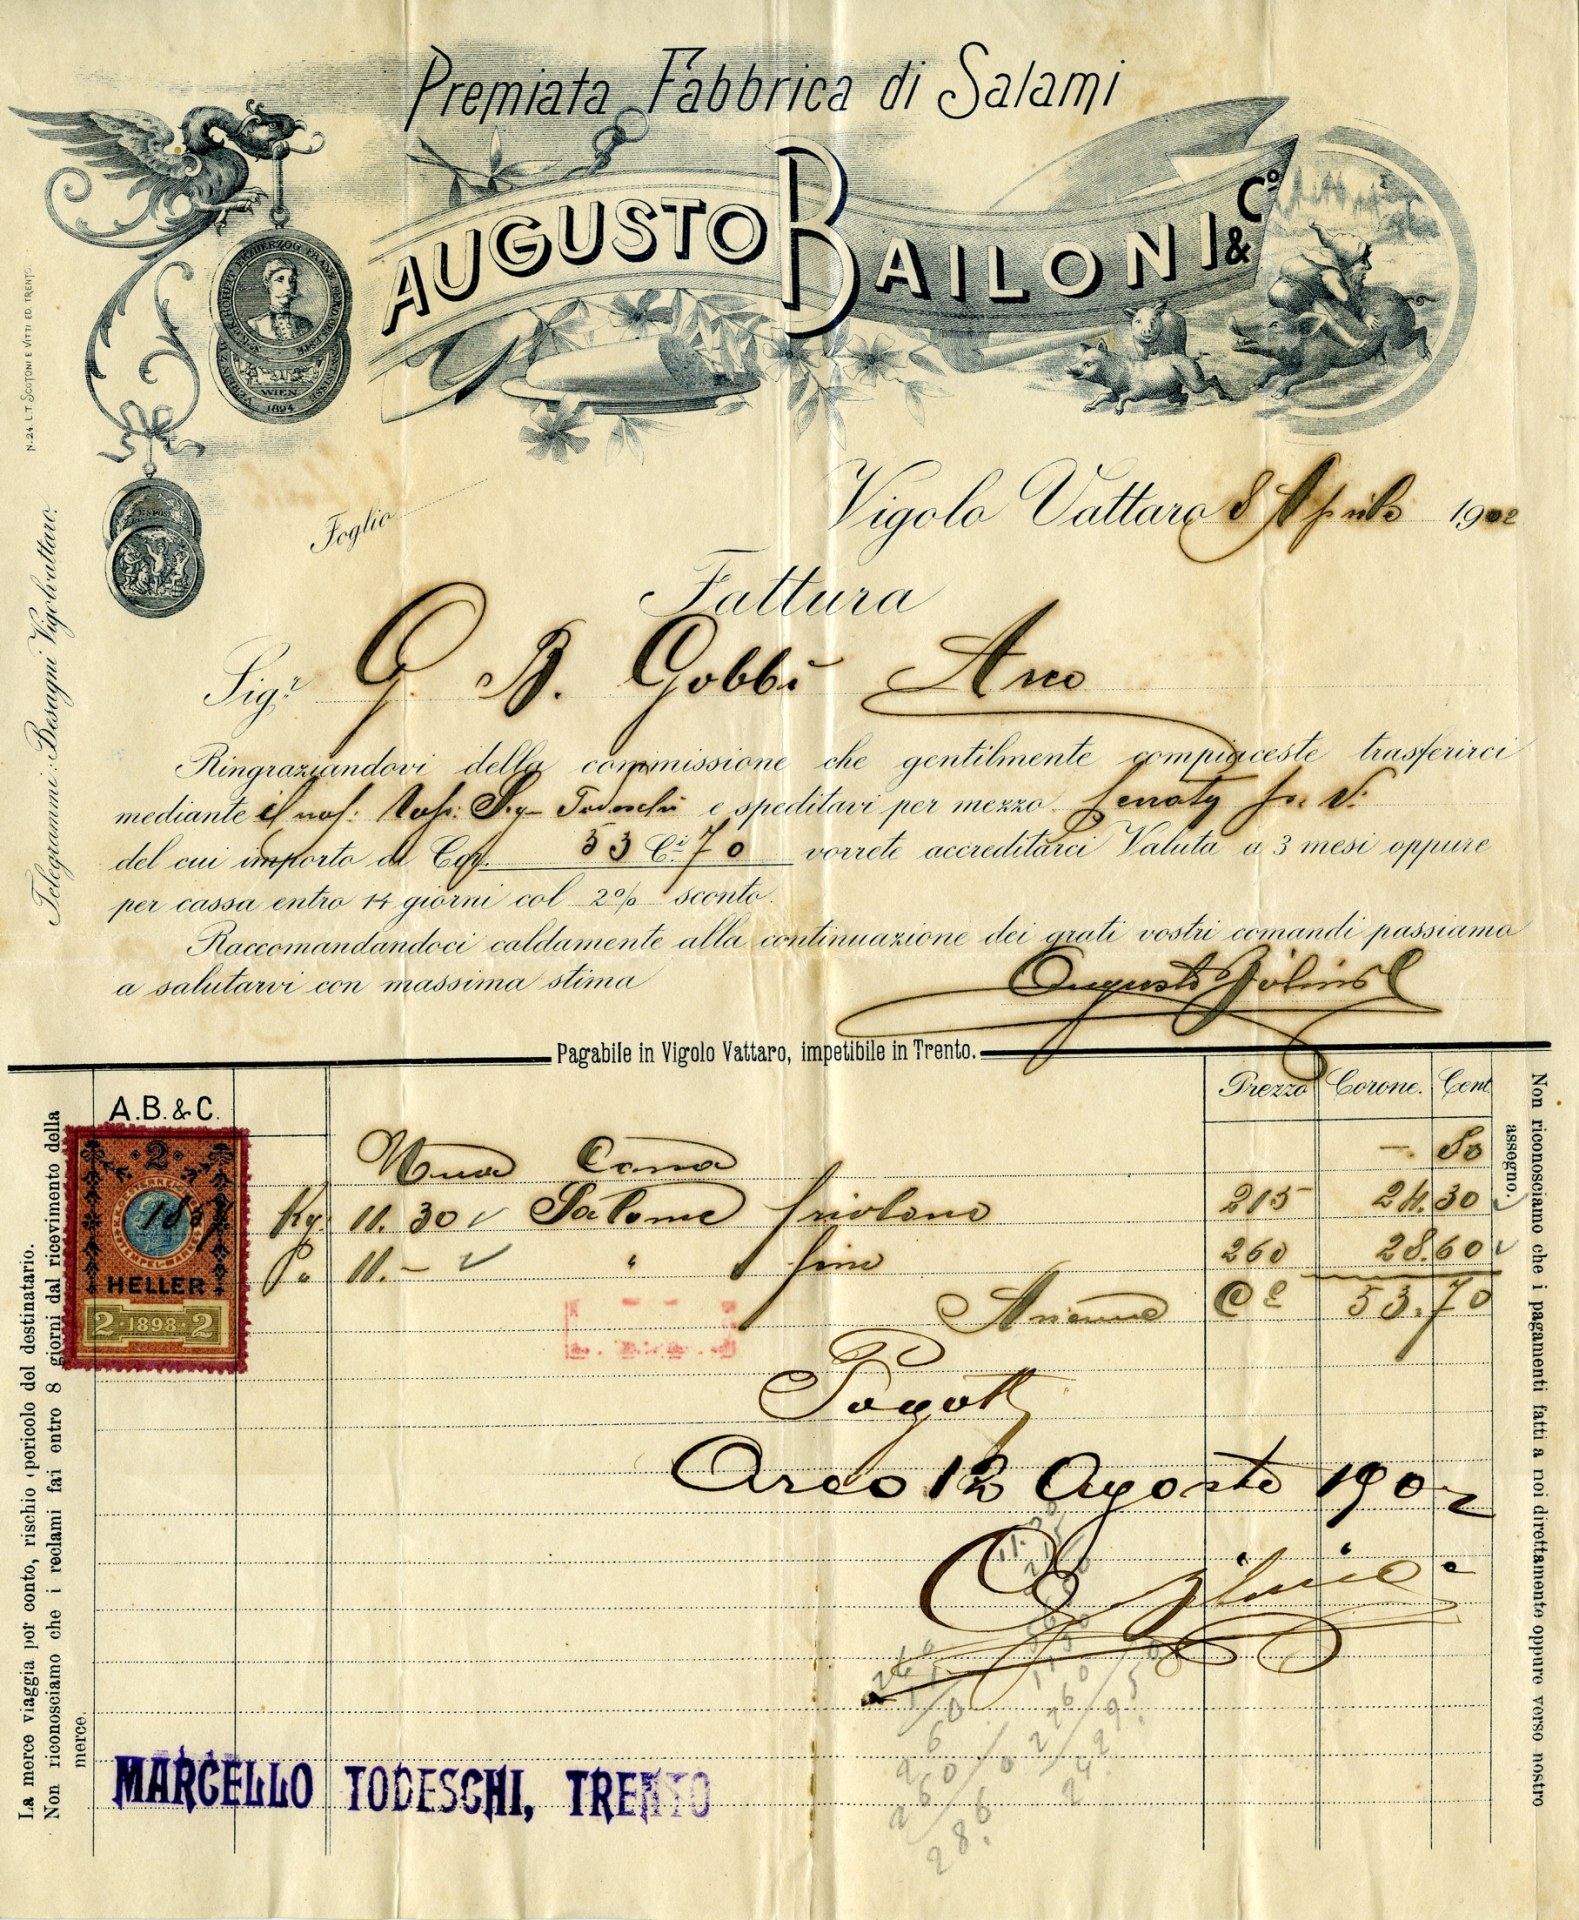 Premiata Fabbrica di Salami
AUGUSTO BAILONI & Cº
WIEN
1894
N. 24. L.T. SCOTONI E VITTI ED. TRENTO
Foglio
Vigolo Vattaro 8 Aprile 1902
Fattura
Sigr. G. B. Gobbi Arco
Ringraziandovi della commissione che gentilmente compiaceste trasferirci
mediante il nos: Sig. Todeschi e speditavi per mezzo
del cui importo di Cor. 53 C.i 70 vorrete accreditarci Valuta a 3 mesi oppure
per cassa entro 14 giorni col 2% sconto.
Raccomandandoci caldamente alla continuazione dei grati vostri comandi passiamo
a salutarvi con massima stima
Augusto
Telegrammi: Besagni Vigolvattaro.
Pagabile in Vigolo Vattaro, impetibile in Trento.
Prezzo Corone. Cent.
A.B. & C.
Una Cassa —. 80
Kg. 11. 30 Salame friolano 215 24.30
P„ 11.– " fine 260 28.60
Assieme C.e 53.70
2
HELLER
2 · 1898 · 2
Pagato
Arco 12 Agosto 1902
MARCELLO TODESCHI, TRENTO
La merce viaggia per conto, rischio e pericolo del destinatario.
Non riconosciamo che i reclami fai entro 8 giorni dal ricevimento della
merce.
Non riconosciamo che i pagamenti fatti a noi direttamente oppure verso nostro
assegno.